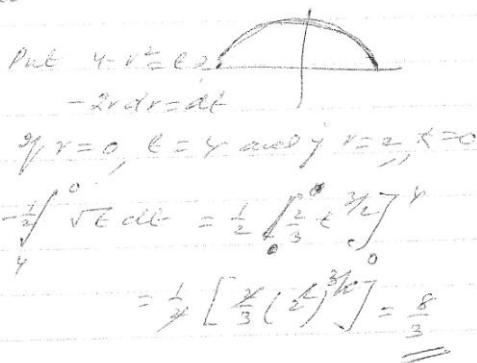 Put 4-r²=t
-2rdr=dt
If r=0, t=4 and if r=2, t=0
-1/2 ∫₄⁰ √t dt = 1/2 [2/3 t^{3/2}]₀⁴
= 1/2 [2/3 (2²)^{3/2}] = 8/3